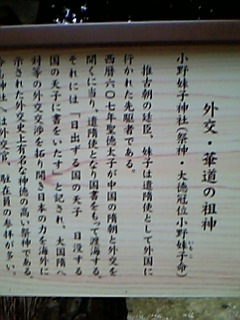 外交・華道の祖神
小野妹子神社(祭神・大徳冠位小野妹子命)
推古朝の廷臣、妹子は遣隋使として外国に
行かれた先駆者である。
西暦六〇七年聖徳太子が中国の隋朝と外交を
開くに当り、遣隋使となり国書をもって渡海する。
それには「日出ずる国の天子 日没する
国の天子に書をいたす」と記され、大国隋へ
対等の外交交渉を拓り開き日本の力を海外に
示された外交史上有名な神徳の高い祭神である。
神社には外交官、駐在員の参拝が多い。